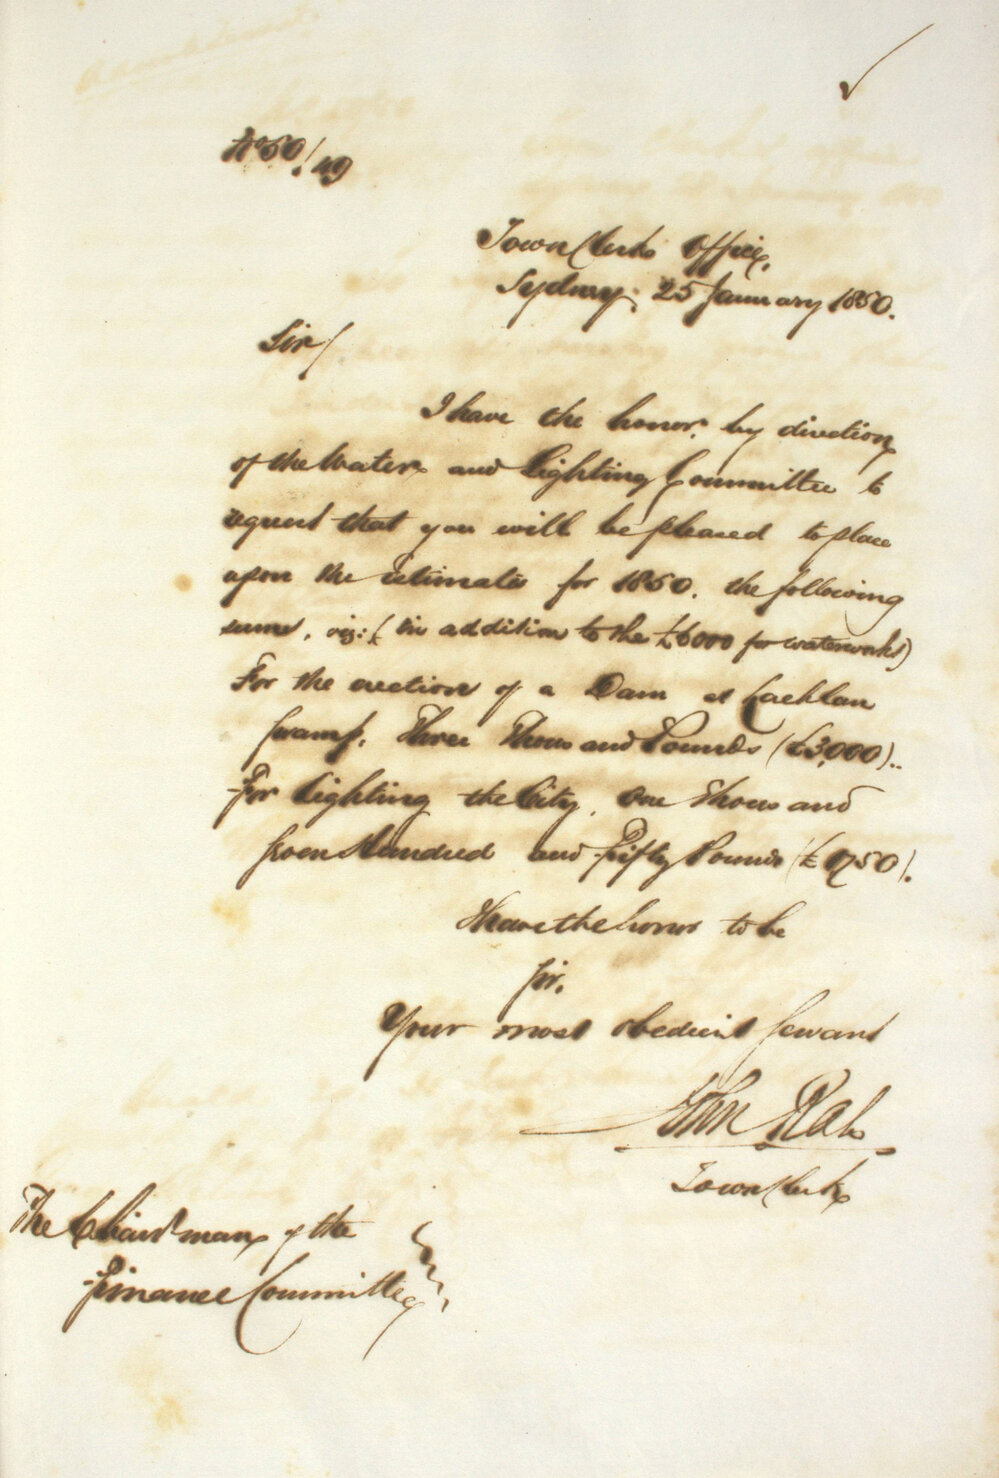 No 50/49
Town Clerks Office,
Sydney. 25 January 1850.
Sir/
I have the honor by direction
of the Water and Lighting Committee to
request that you will be pleased to place
upon the estimates for 1850. the following
sums, viz: (in addition to the £6000 for waterworks)
For the erection of a Dam at Lachlan
Swamp, Three Thousand Pounds (£3,000)..
For lighting the City, One Thousand
Seven Hundred and Fifty Pounds (£1750).
I have the honor to be
Sir.
Your most obedient Servant
John Rae
Town Clerk
The Chairman of the
Finance Committee